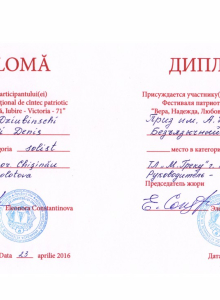 LOMĂ
articipantului(ei)
țional de cîntec patriotic
ă, Iubire - Victoria - 71"
Dziubinschi
Denis
goria solist
or Chișinău
olotova
Eleonora Constantinova
Data 23 aprilie 2016
ДИПЛ
Присуждается участнику(
Фестиваля патриот
"Вера, Надежда, Любов
Приз им. А.
Безъязычный
место в категори
ТЛ „М. Греку" г.
Руководитель -
Председатель жюри
Эле
Да